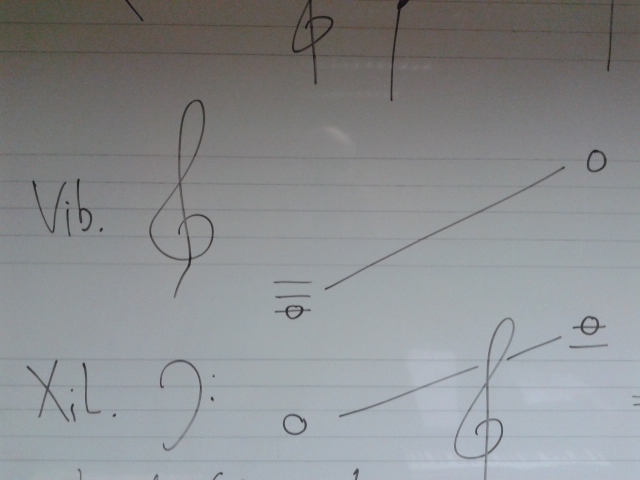 Vib.
Xil.